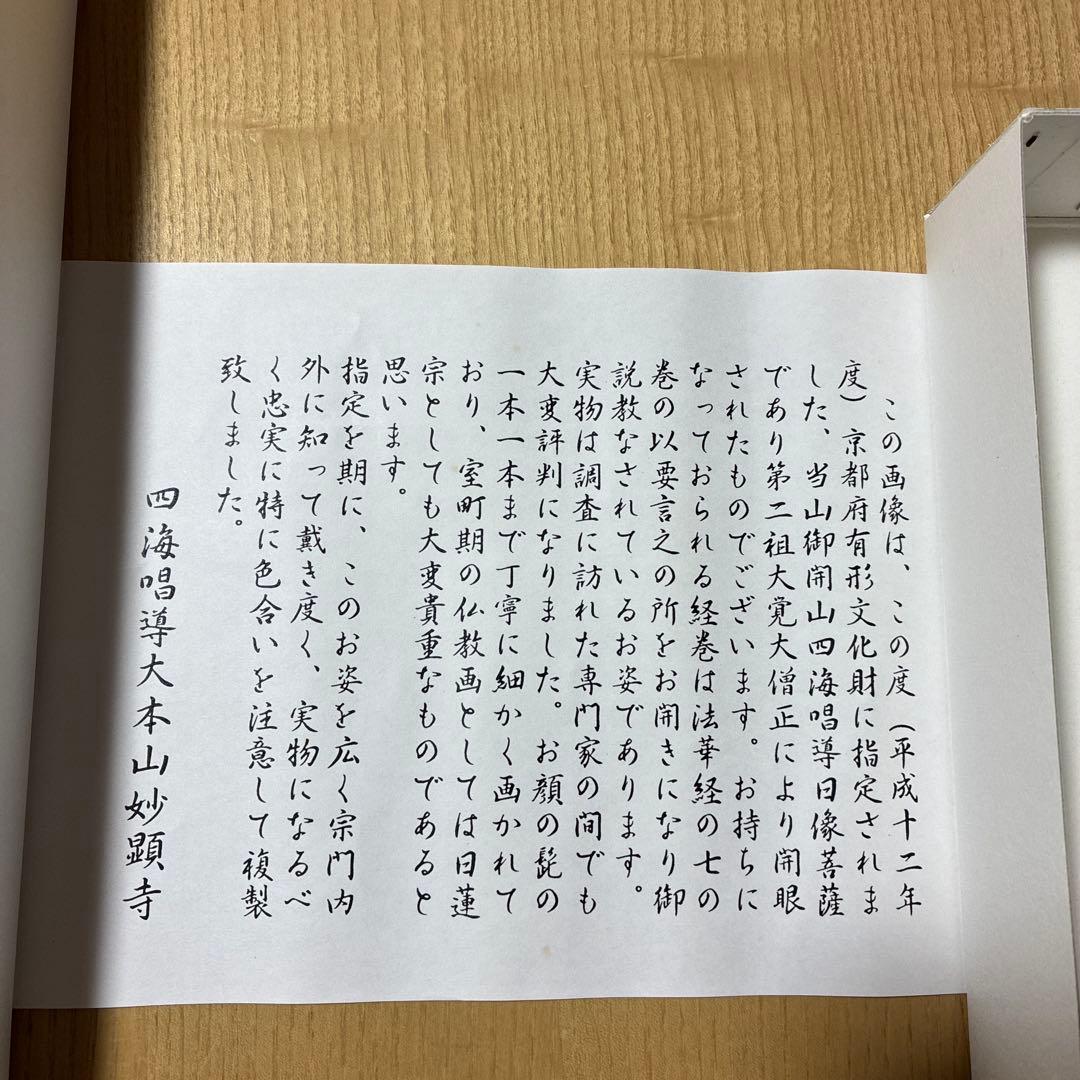 この画像は、この度（平成十二年
度）京都府有形文化財に指定されま
した、当山御開山四海唱導日像菩薩
であり第二祖大覚大僧正により開眼
されたものでございます。お持ちに
なっておられる経巻は法華経の七の
巻の以要言之の所をお開きになり御
説教なされているお姿であります。
実物は調査に訪れた専門家の間でも
大変評判になりました。お顔の髭の
一本一本まで丁寧に細かく画かれて
おり、室町期の仏教画としては日蓮
宗としても大変貴重なものであると
思います。
指定を期に、このお姿を広く宗門内
外に知って戴き度く、実物になるべ
く忠実に特に色合いを注意して複製
致しました。
四海唱導大本山妙顕寺